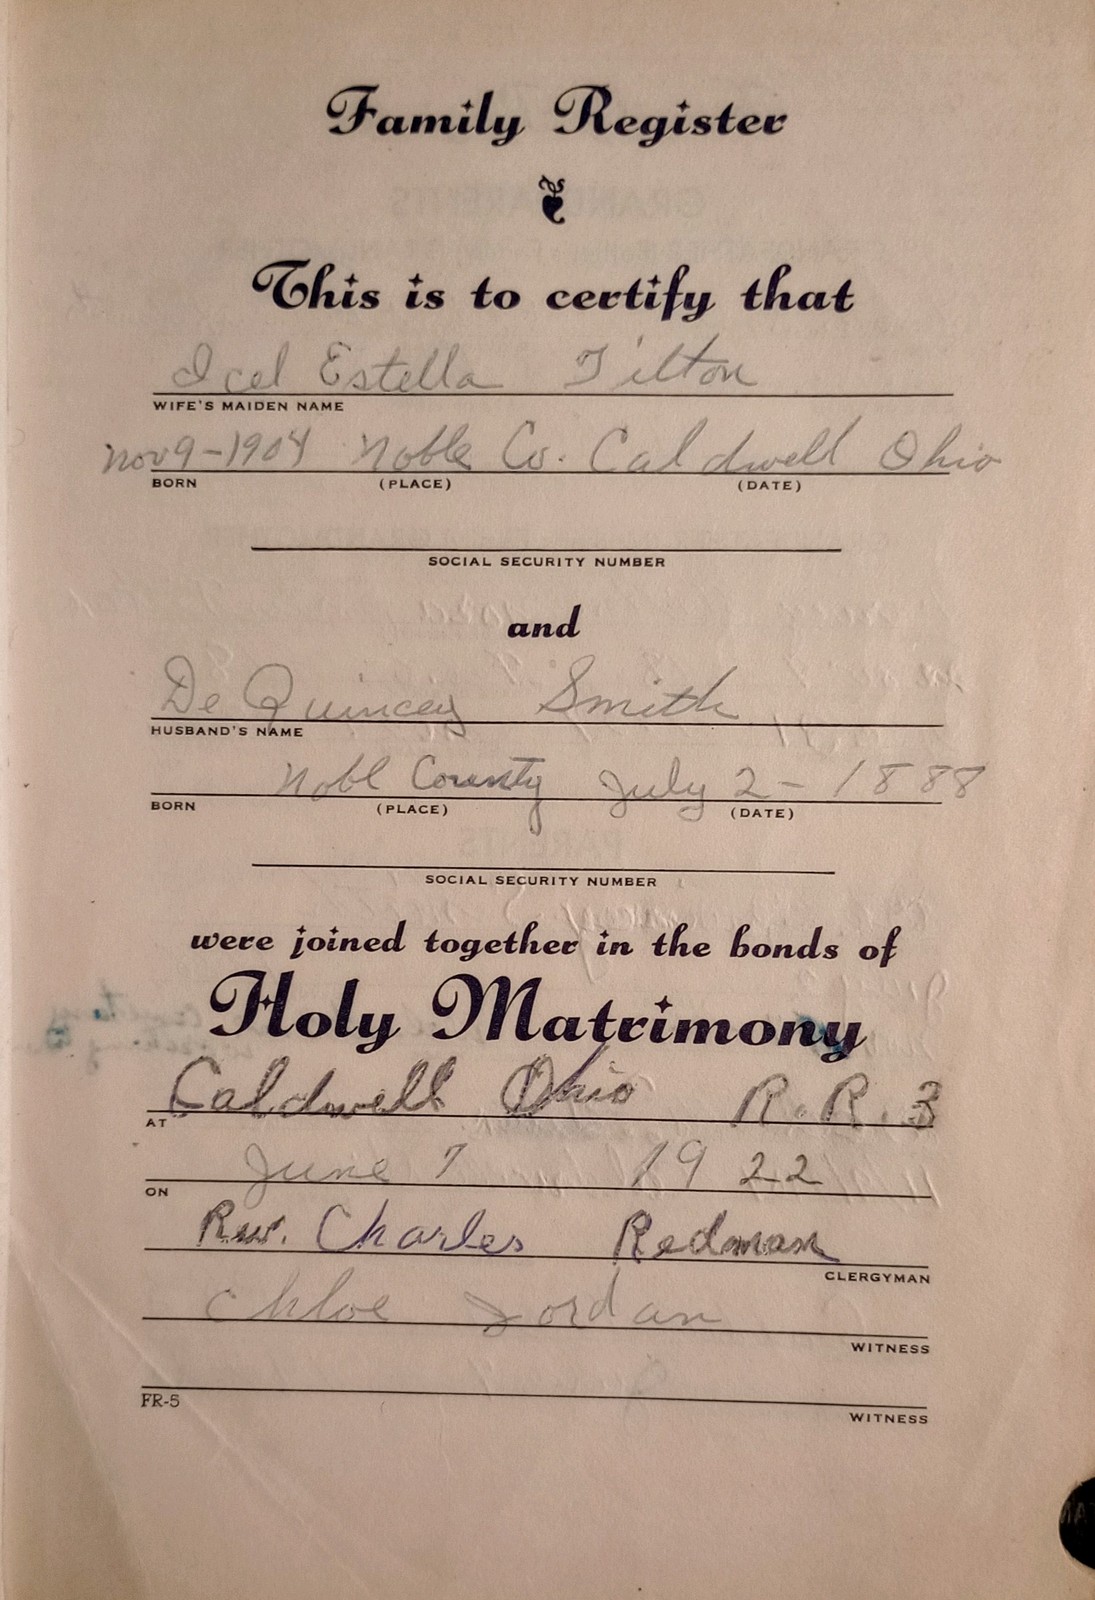 Family Register
This is to certify that
Icel Estella Tilton
WIFE'S MAIDEN NAME
Nov 9-1904 Noble Co. Caldwell Ohio
BORN (PLACE) (DATE)
SOCIAL SECURITY NUMBER
and
De Quincey Smith
HUSBAND'S NAME
Nobl County July 2-1888
BORN (PLACE) (DATE)
SOCIAL SECURITY NUMBER
were joined together in the bonds of
Holy Matrimony
Caldwell Ohio R.R.3
AT
June 7 1922
ON
Rev. Charles Redman
CLERGYMAN
Chloe Jordan
WITNESS
FR-5
WITNESS